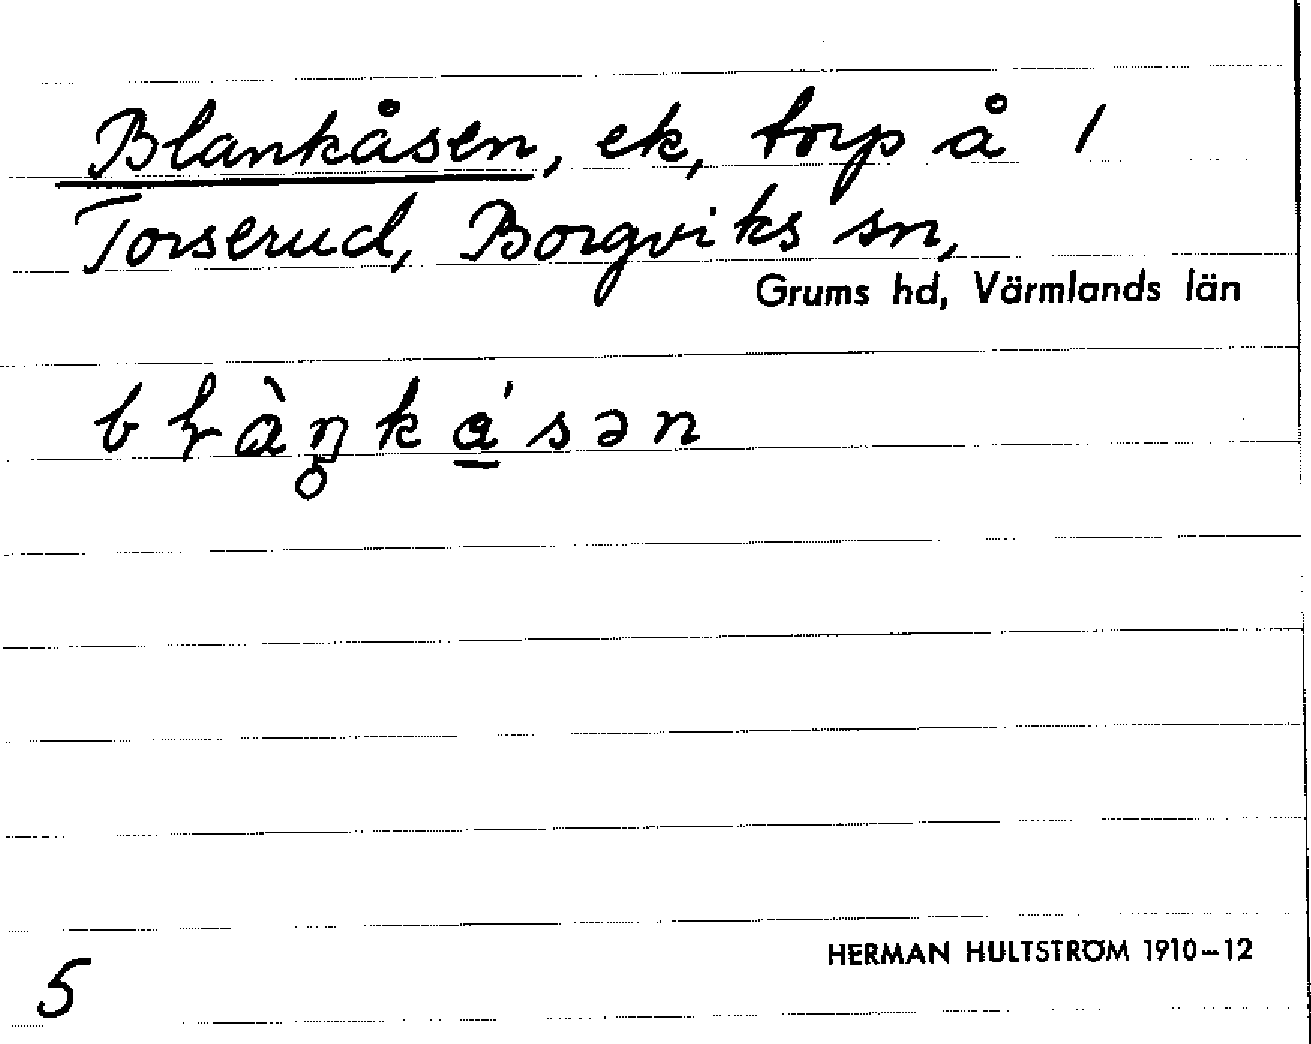 Blankåsen, ek, torp å 1
Torserud, Borgviks sn,
Grums hd, Värmlands län
bɽàŋ̥ka̲'sən
HERMAN HULTSTRÖM 1910–12
5